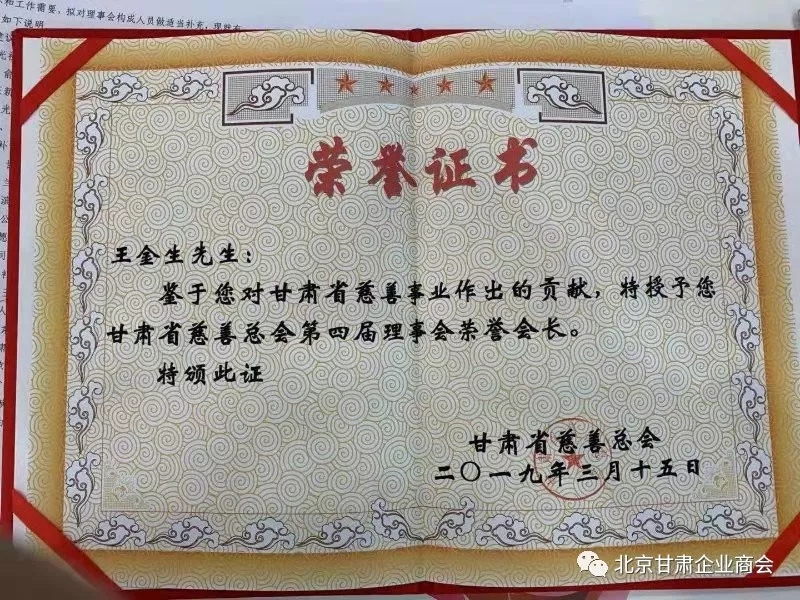 和工作需要，拟对理事会构成人员做适当补充，现就有
如下说明
荣誉证书
王金生先生：
鉴于您对甘肃省慈善事业作出的贡献，特授予您
甘肃省慈善总会第四届理事会荣誉会长。
特颁此证
甘肃省慈善总会
二〇一九年三月十五日
北京甘肃企业商会